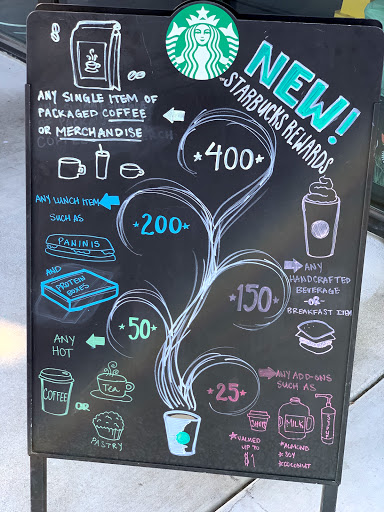 NEW!
STARBUCKS REWARDS
ANY SINGLE ITEM OF
PACKAGED COFFEE
OR MERCHANDISE
*400*
ANY LUNCH ITEM
SUCH AS
PANINIS
AND
PROTEIN
BOXES
*200*
*150*
ANY
HANDCRAFTED
BEVERAGE
-OR-
BREAKFAST ITEM
*50*
ANY
HOT
COFFEE
OR
Tea
PASTRY
*25*
ANY ADD-ONS
SUCH AS
MILK
*VALUED
UP TO
$1
*ALMOND
*SOY
*COCONUT